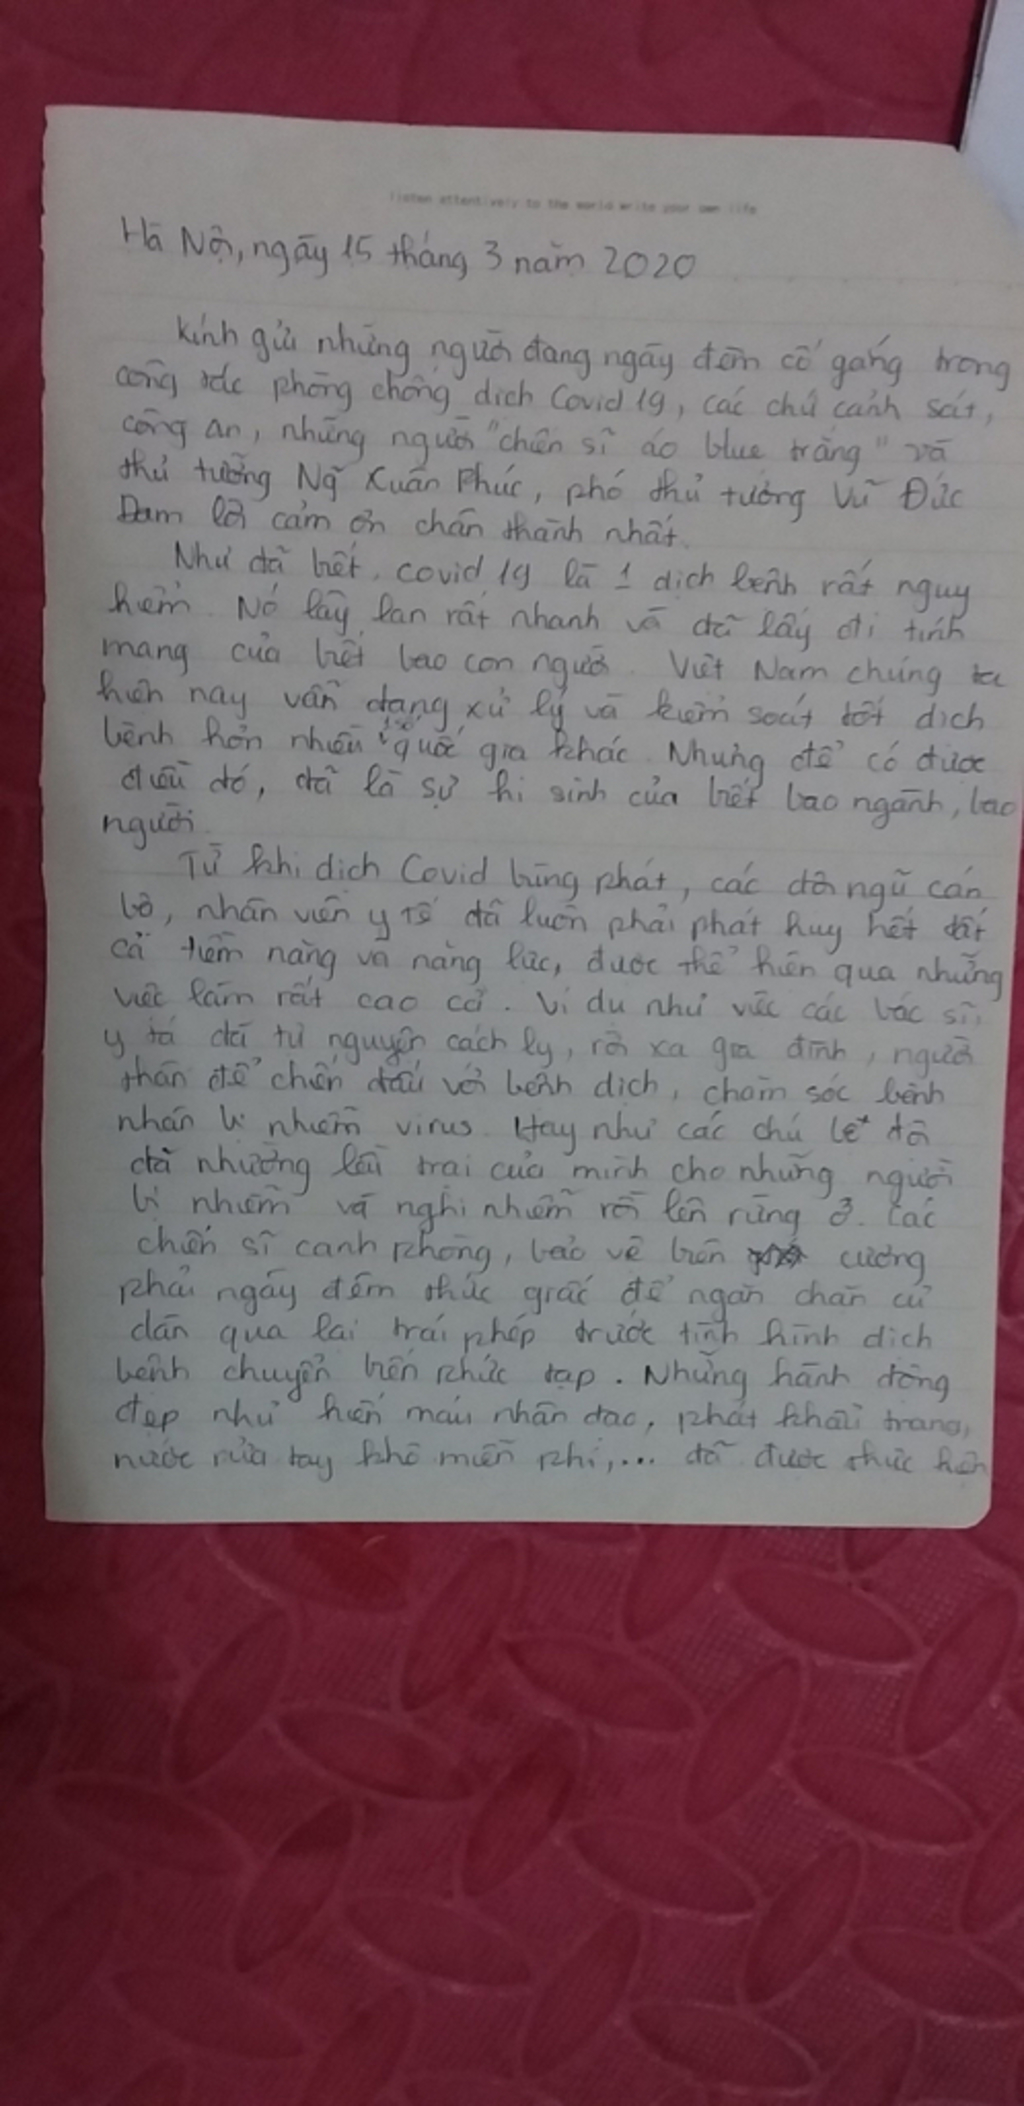 listen attentively to the world write your own life
Hà Nội, ngày 15 tháng 3 năm 2020
Kính gửi những người đang ngày đêm cố gắng trong
công tác phòng chống dịch Covid 19, các chú cảnh sát,
công an, những người "chiến sĩ áo blue trắng" và
thủ tướng Ng̃ Xuân Phúc, phó thủ tướng Vũ Đức
Đam lời cảm ơn chân thành nhất.
Như đã biết, covid 19 là 1 dịch bệnh rất nguy
hiểm. Nó lây lan rất nhanh và đã lấy đi tính
mạng của biết bao con người. Việt Nam chúng ta
hiện nay vẫn đang xử lý và kiểm soát tốt dịch
bệnh hơn nhiều quốc gia khác. Nhưng để có được
điều đó, đã là sự hi sinh của biết bao ngành, bao
người.
Từ khi dịch Covid bùng phát, các đội ngũ cán
bộ, nhân viên y tế đã luôn phải phát huy hết tất
cả tiềm năng và năng lực, được thể hiện qua những
việc làm rất cao cả. Ví dụ như việc các bác sĩ,
y tá đã tự nguyện cách ly, rời xa gia đình, người
thân để chiến đấu với bệnh dịch, chăm sóc bệnh
nhân bị nhiễm virus. Hay như các chú bộ đội
đã nhường lại trại của mình cho những người
bị nhiễm và nghi nhiễm rồi lên rừng ở. Các
chiến sĩ canh phòng, bảo vệ biên cương
phải ngày đêm thức giấc để ngăn chặn cư
dân qua lại trái phép trước tình hình dịch
bệnh chuyển biến phức tạp. Những hành động
đẹp như hiến máu nhân đạo, phát khẩu trang,
nước rửa tay khô miễn phí,... đã được thực hiện